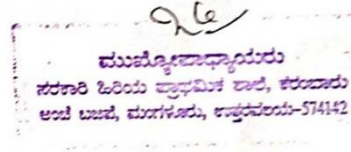 ಮುಖ್ಯೋಪಾಧ್ಯಾಯರು
ಸರಕಾರಿ ಹಿರಿಯ ಪ್ರಾಥಮಿಕ ಶಾಲೆ, ಕರಂಬಾರು
ಅಂಚೆ ಬಜಪೆ, ಮಂಗಳೂರು, ಉತ್ತರವಲಯ-574142